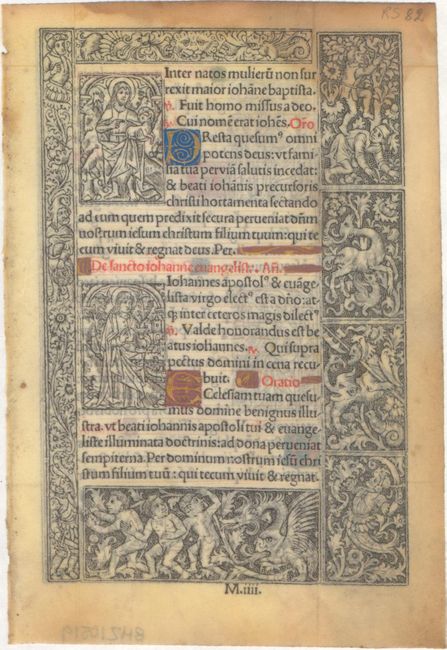 RS 82
Inter natos mulierū non sur
rexit maior iohāne baptista.
℣. Fuit homo missus a deo.
℟. Cui nomē erat iohēs. Oro
PResta quesumꝰ omni
potens deus: vt fami
lia tua per viā salutis incedat:
& beati iohānis precursoris
christi hortamenta sectando
ad eum quem predixit secura perueniat dn̄m
nostrum iesum christum filium tuum: qui te
cum viuit & regnat deus. Per.
De sancto iohanne euangelist. An̄.
Iohannes apostolꝰ & euāge-
lista virgo electꝰ est a dn̄o: at-
q; inter ceteros magis dilectꝰ
℣. Valde honorandus est be
atus iohannes. ℟. Qui supra
pectus domini in cena recu
buit. Oratio
ECclesiam tuam quesu
mus domine benignus illu
stra. vt beati iohannis apostoli tui & euange-
liste illuminata doctrinis: ad dona perueniat
sempiterna. Per dominum nostrum iesū chri
stum filium tuū: qui tecum viuit & regnat.
M.iiii.